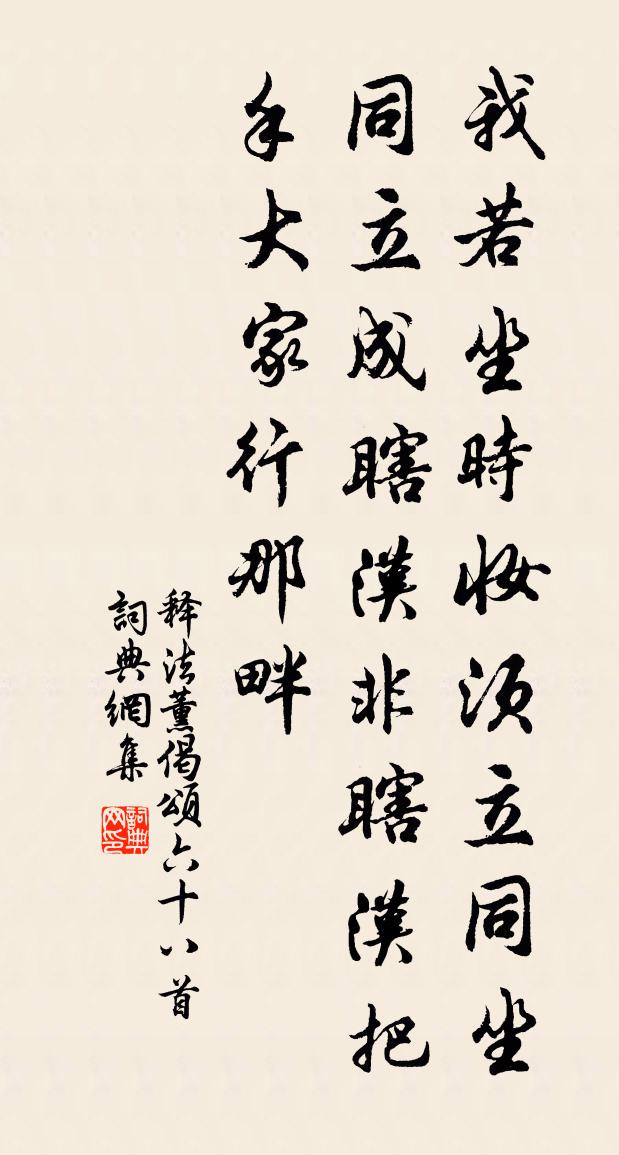 我若坐時汝須立同坐
同立成瞎漢非瞎漢把
手大家行那畔
释法薰偈頌六十八首
詞典網集
詞典网印